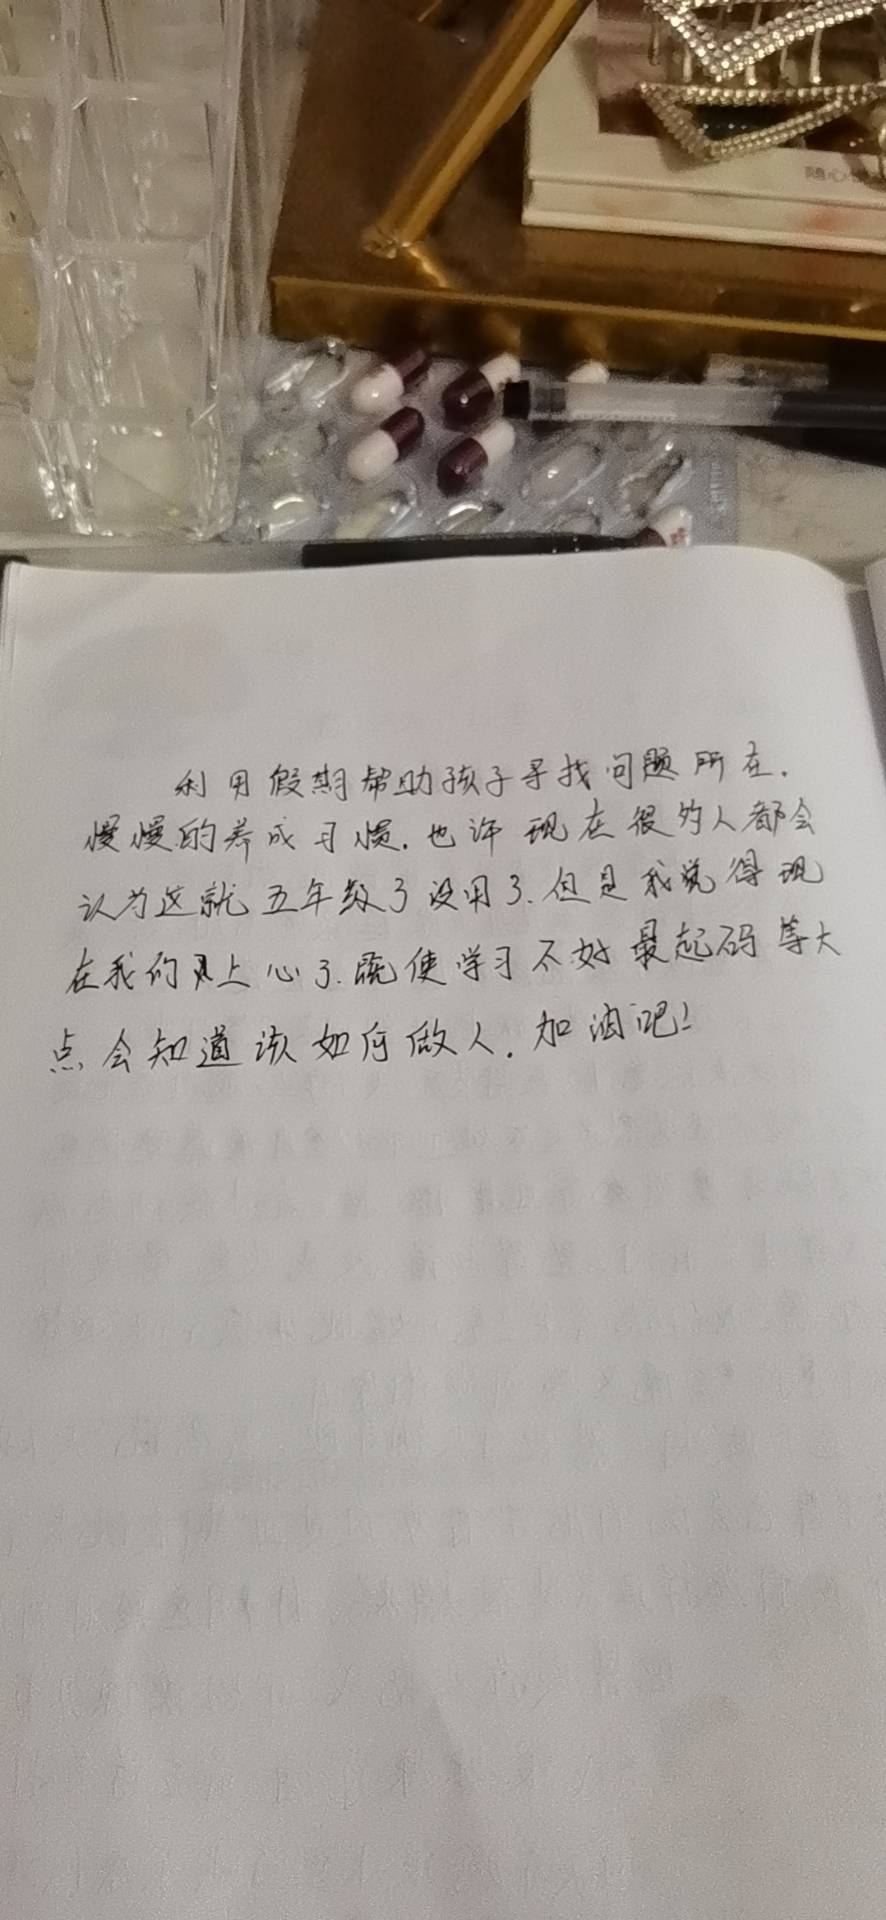 随心
利用假期帮助孩子寻找问题所在.
慢慢的养成习惯.也许现在很多人都会
认为这就五年级了没用了.但是我觉得现
在我们上心了.既使学习不好最起码等大
点会知道该如何做人.加油吧!